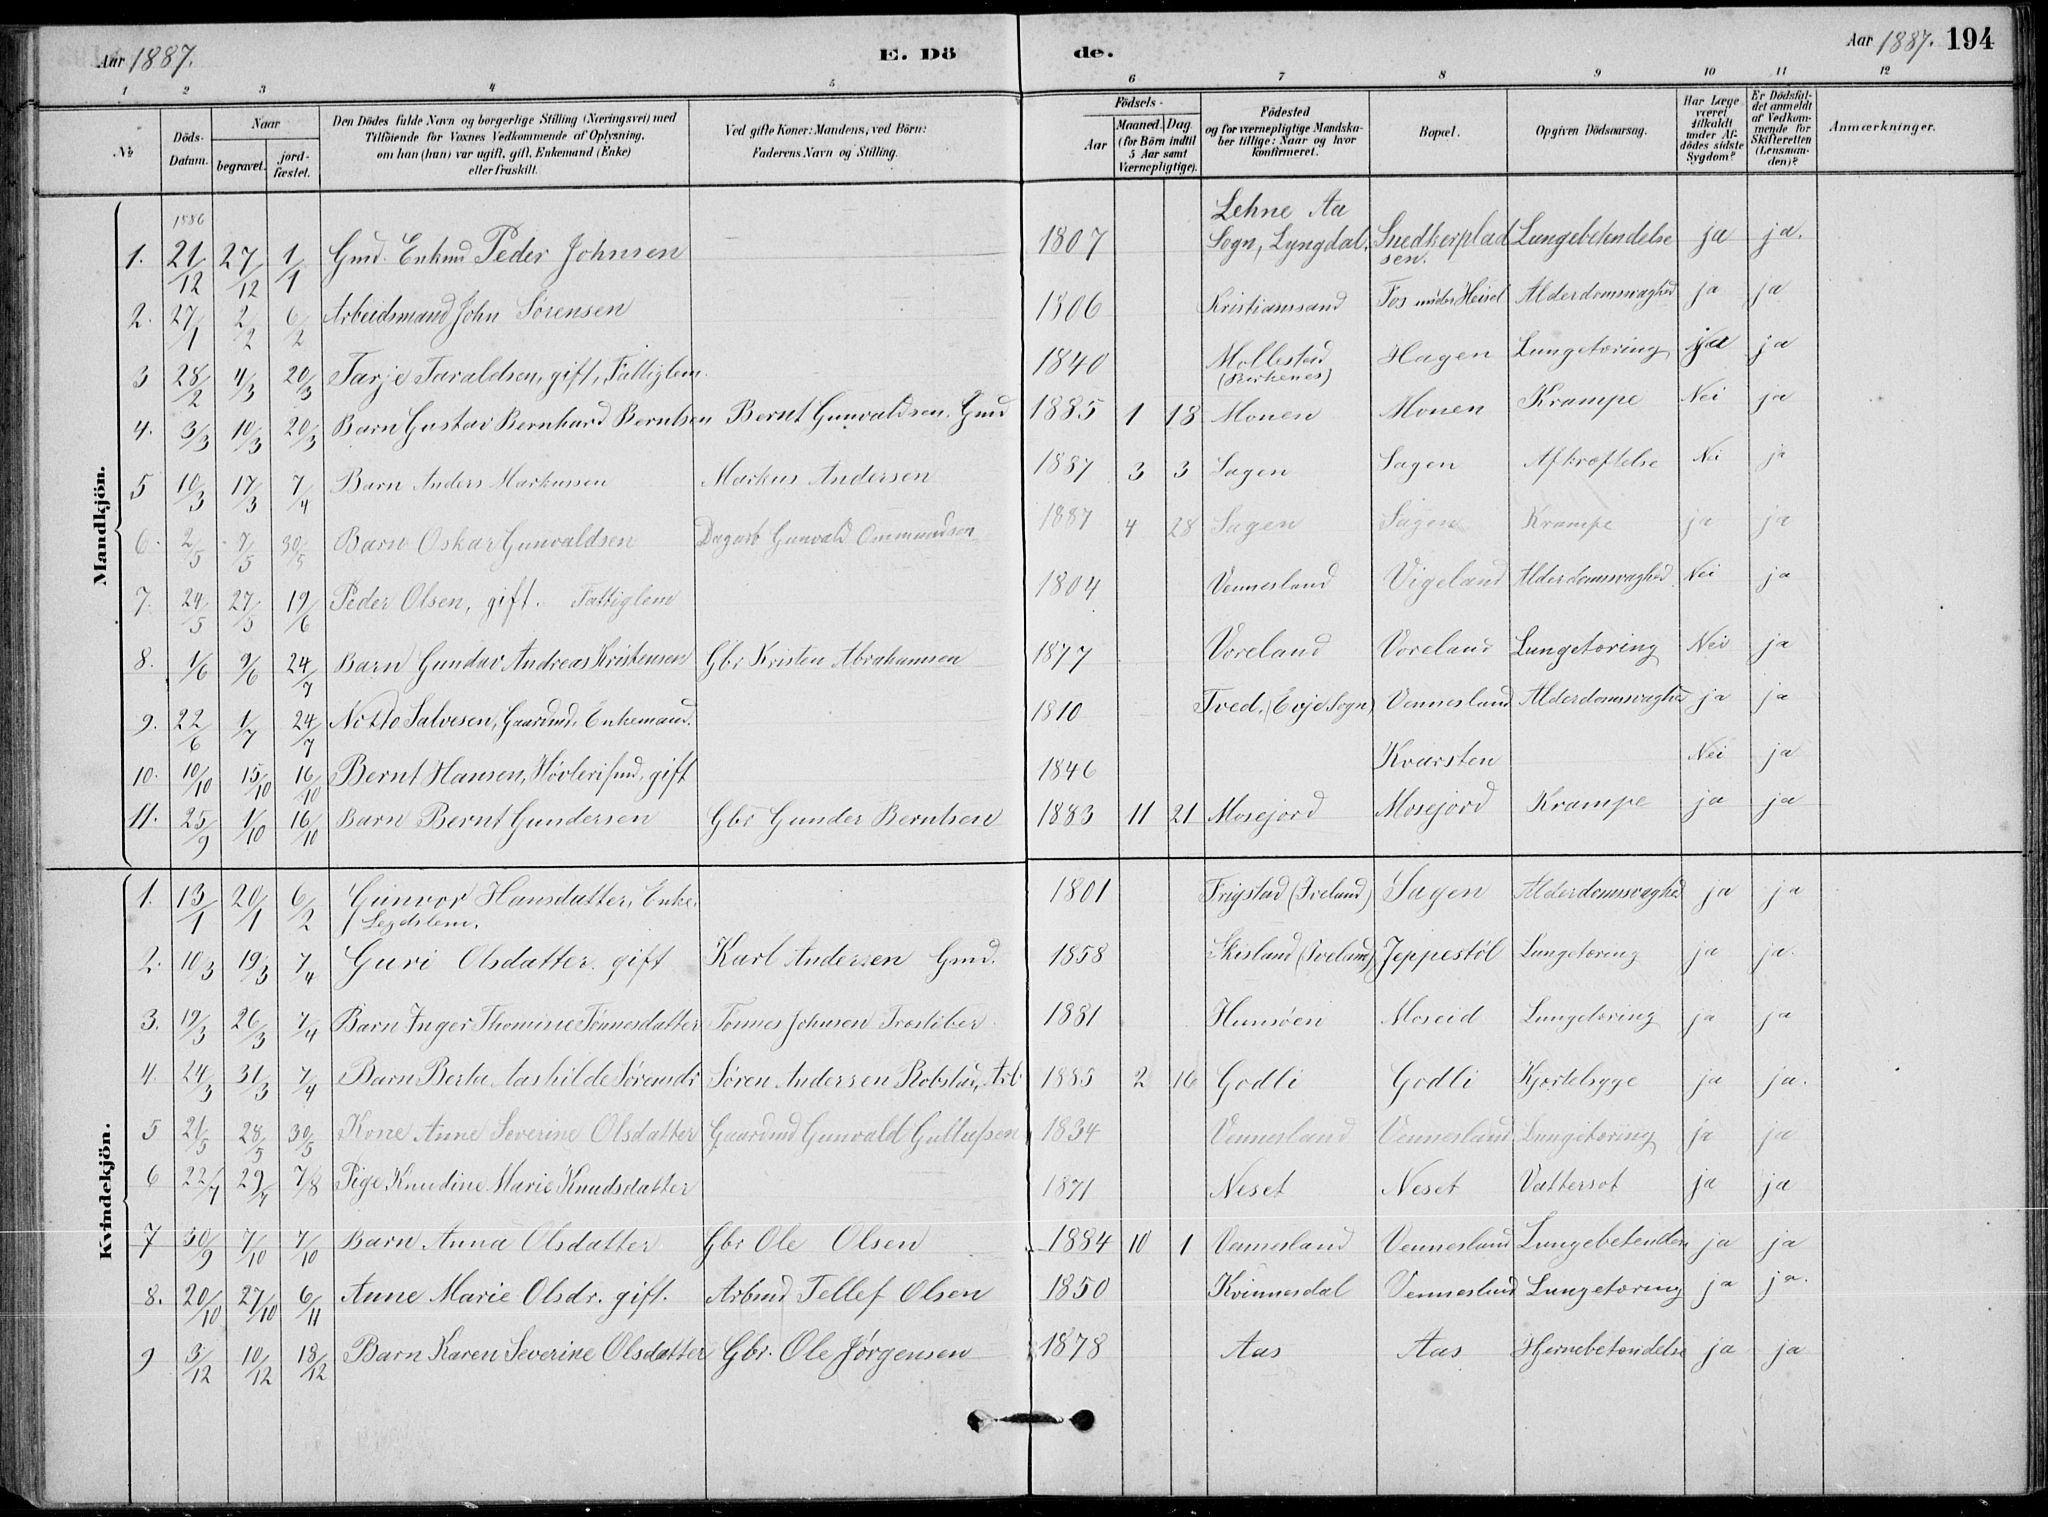 Aar 1887. E. Dö de. Aar 1887. 194
1 2 3 4 5 6 7 8 9 10 11 12
№ Döds-Datum. Naar begravet. jord-fæstet. Den Dödes fulde Navn og borgerlige Stilling (Næringsvei) med Tilföiende for Voxnes Vedkommende af Oplysning, om han (hun) var ugift, gift, Enkemand (Enke) eller fraskilt. Ved gifte Koner: Mandens, ved Börn: Faderens Navn og Stilling. Födsels- Aar Maaned. Dag. (for Börn indtil 5 Aar samt Værnepligtige). Födested og for værnepligtige Mandskaber tillige: Naar og hvor konfirmeret. Bopæl. Opgiven Dödsaarsag. Har Læge været tilkaldt under Afdödes sidste Sygdom? Er Dödsfaldet anmeldt af Vedkommende for Skifteretten (Lensmanden)? Anmærkninger.
Mandkjön.
1886
1. 21/12 27/12 1/1 Gmd. Enkmd Peder Johnsen 1807 Lehne Aa Sogn, Lyngdal. Snedkerpladsen. Lungebetendelse ja ja.
2. 27/1 2/2 6/2 Arbeidsmand John Sørensen 1806 Kristianssand Fos under Heisel Alderdomssvaghed ja ja
3 28/2 4/3 20/3 Tarje Taraldsen, gift, Fattiglem. 1840 Mollestad (Birkenes) Hagen Lungetæring ja ja
4. 3/3 10/3 20/3 Barn Gustav Bernhard Berntsen Bernt Gunvaldsen, Gmd 1885 1 18 Monen Monen Krampe Nei ja
5 10/3 17/3 7/4 Barn Anders Markussen Markus Andersen 1887 3 3 Sagen Sagen Afkræftelse Nei ja
6. 2/5 7/5 30/5 Barn Oskar Gunvaldsen Dagarb Gunvald Ommundsen 1887 4 28 Sagen Sagen Krampe ja ja
7. 24/5 27/5 19/6 Peder Olsen, gift. Fattiglem 1804 Vennesland Vigeland Alderdomssvaghed Nei ja
8. 1/6 9/6 24/7 Barn Gundav Andreas Kristensen Gbr Kristen Abrahamsen 1877 Voreland Voreland Lungetæring Nei ja
9. 22/6 1/7 24/7 Notto Salvesen, Gaardmd, Enkemand. 1810 Tved. (Evje Sogn) Vennesland Alderdomssvaghed ja ja
10. 10/10 15/10 16/10 Bernt Hansen, Høvlerifmd, gift 1846 Kvarsten Nei ja
11. 25/9 1/10 16/10 Barn Bernt Gundersen Gbr Gunder Berntsen 1883 11 21 Mosejord Mosejord Krampe ja ja
Kvindekjön.
1. 13/1 20/1 6/2 Gunvor Hansdatter, Enke. Legdslem. 1801 Frigstad (Iveland) Sagen Alderdomssvaghed ja ja
2. 10/3 19/3 7/4 Guri Olsdatter gift Karl Andersen Gmd. 1858 Skisland (Iveland) Jeppestøl Lungetæring ja ja.
3. 19/3 26/3 7/4 Barn Inger Thomine Tønnesdatter Tønnes Johnsen Drosliber 1881 Hunsøen Moseid Lungetæring ja ja
4. 24/3 31/3 7/4 Barn Berta Aashilde Sørensdr Søren Andersen Robstad, Arb 1885 2 16 Godli Godli Kjertelsyge ja ja.
5 21/5 28/5 30/5 Kone Anne Severine Olsdatter Gaardmd Gunvald Gullufsen 1834 Vennesland Vennesland Lungetæring ja ja
6 22/7 29/7 7/8 Pige Knudine Marie Knudsdatter 1871 Neset Neset Vattersot ja ja
7 30/9 7/10 7/10 Barn Anna Olsdatter Gbr Ole Olsen 1884 10 1 Vennesland Vennesland Lungebetenden ja ja
8. 20/10 27/10 6/11 Anne Marie Olsdr. gift. Arbmd Tellef Olsen 1850 Kvinnesdal Vennesland Lungetæring ja ja.
9 3/12 10/12 18/12 Barn Karen Severine Olsdatter Gbr. Ole Jørgensen 1878 Aas Aas Hjernebetendelse ja ja